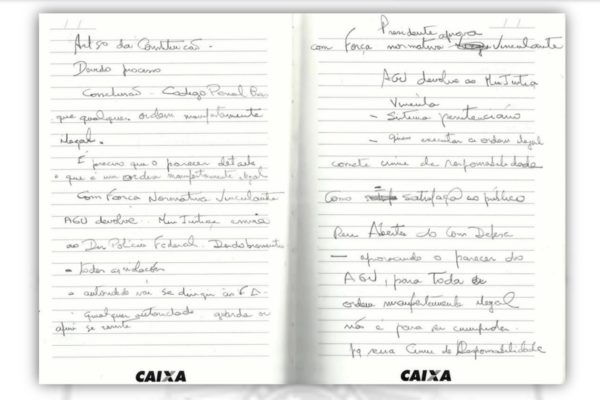 Artigo da Constituição -
processo
Conclusão - Código Penal
que qualquer ordem manifestamente
ilegal.
É preciso que o parecer detalhe
o que é uma ordem manifestamente ilegal
Com Força Normativa Vinculante
AGU devolve Min Justiça
ao Dir Polícia Federal.
- todas as
- autoridade vai se dirigir às FA -
qualquer autoridade
se
Presidente aprova
com Força normativa vinculante
AGU devolve ao Min Justiça
Vincula
- Sistema penitenciário
- quem executar a ordem ilegal
comete crime de responsabilidade
Como satisfação ao público
Para Abertos do Com Defesa
- aprovando o parecer do
AGU, para toda
ordem manifestamente ilegal
não é para ser cumprida.
pq seria Crime de Responsabilidade
CAIXA
CAIXA